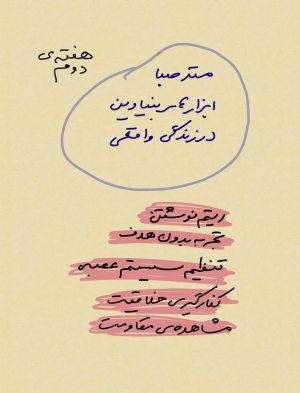 هفته‌ی
دوم
مستر صبا
ابزارهای بنیادین
در زندگی واقعی
ریتم نوشتن
تجربه بدون هدف
تنظیم سیستم عصبی
کنارگیری خلاقیت
مشاهده‌ی مقاومت